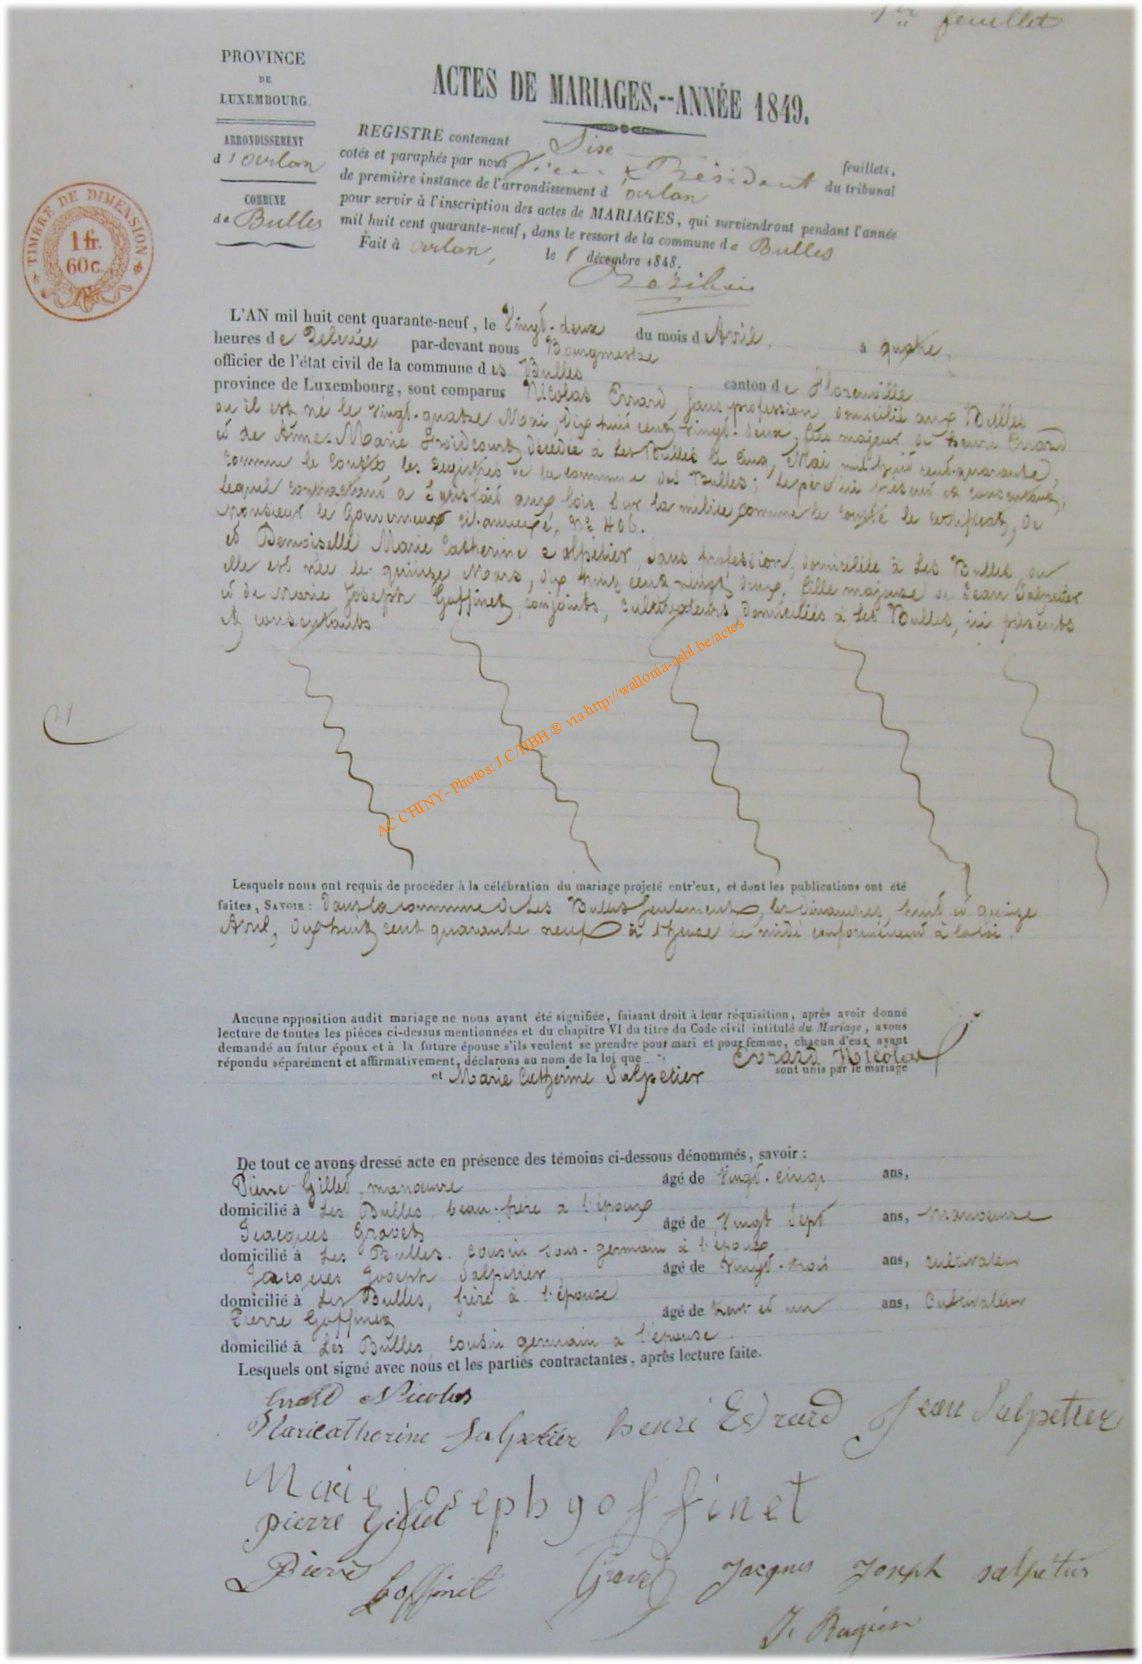 1er feuillet
PROVINCE
DE
LUXEMBOURG.
ARRONDISSEMENT
d'arlon
COMMUNE
de Bulles
TIMBRE DE DIMENSION
1 fr.
60 c.
ACTES DE MARIAGES.--ANNÉE 1849.
REGISTRE contenant Sixe feuillets,
cotés et paraphés par nous Vice-Président du tribunal
de première instance de l'arrondissement d'arlon
pour servir à l'inscription des actes de MARIAGES, qui surviendront pendant l'année
mil huit cent quarante-neuf, dans le ressort de la commune de Bulles
Fait à arlon, le 1 décembre 1848.
L'AN mil huit cent quarante-neuf, le Vingt-deux du mois d'Avril, à quatre
heures de Relevée par-devant nous Bourgmestre
officier de l'état civil de la commune des Bulles canton de Florenville
province de Luxembourg, sont comparus Nicolas Evrard, sans profession, domicilié aux Bulles
où il est né le vingt-quatre Mai, dix huit cent vingt-deux, fils majeur de henri Evrard
et de Anne-Marie Froidcourt décédée à Les Bulles le cinq Mai mil huit cent quarante,
comme le conste les registres de la commune des Bulles; le père ici présent et consentant;
lequel contractant a satisfait aux lois sur la milice comme le conste le certificat, de
monsieur le Gouverneur ci-annexé, N° 406.
et Demoiselle Marie Catherine Salpetier, sans profession, domiciliée à Les Bulles, où
elle est née le quinze Mars, dix huit cent vingt deux, fille majeure de Jean Salpetier
et de Marie Joseph Goffinet, conjoints, cultivateurs, domiciliés à Les Bulles, ici présents
et consentants
AC CHINY - Photos: J.C/HBH ® via http://wallonia-asbl.be/actes
Lesquels nous ont requis de procéder à la célébration du mariage projeté entr'eux, et dont les publications ont été
faites, SAVOIR: Dans la commune de Les Bulles seulement, les dimanches, huit et quinze
Avril, dix huit cent quarante neuf à l'heure de midi conformément à la loi.
Aucune opposition audit mariage ne nous ayant été signifiée, faisant droit à leur réquisition, après avoir donné
lecture de toutes les pièces ci-dessus mentionnées et du chapitre VI du titre du Code civil intitulé du Mariage, avons
demandé au futur époux et à la future épouse s'ils veulent se prendre pour mari et pour femme, chacun d'eux ayant
répondu séparément et affirmativement, déclarons au nom de la loi que Evrard Nicolas
et Marie Catherine Salpetier sont unis par le mariage
De tout ce avons dressé acte en présence des témoins ci-dessous dénommés, savoir:
Pierre Gillet, manoeuvre âgé de Vingt-cinq ans,
domicilié à Les Bulles, beau-frère à l'époux
Jacques Gravet âgé de Vingt Sept ans, manoeuvre
domicilié à Les Bulles. Cousin sous-germain à l'époux
Jacques Joseph Salpetier, âgé de Vingt-trois ans, cultivateur
domicilié à Les Bulles, frère à l'épouse
Pierre Goffinet âgé de trente et un ans, Cultivateur
domicilié à Les Bulles, cousin germain à l'épouse.
Lesquels ont signé avec nous et les parties contractantes, après lecture faite.
Evrard Nicolas
Maricatherine Salpetier henri Evrard Jean Salpetier
Marie joseph goffinet
pierre Gillet
Pierre Goffinet Gravet Jacques Joseph salpétier